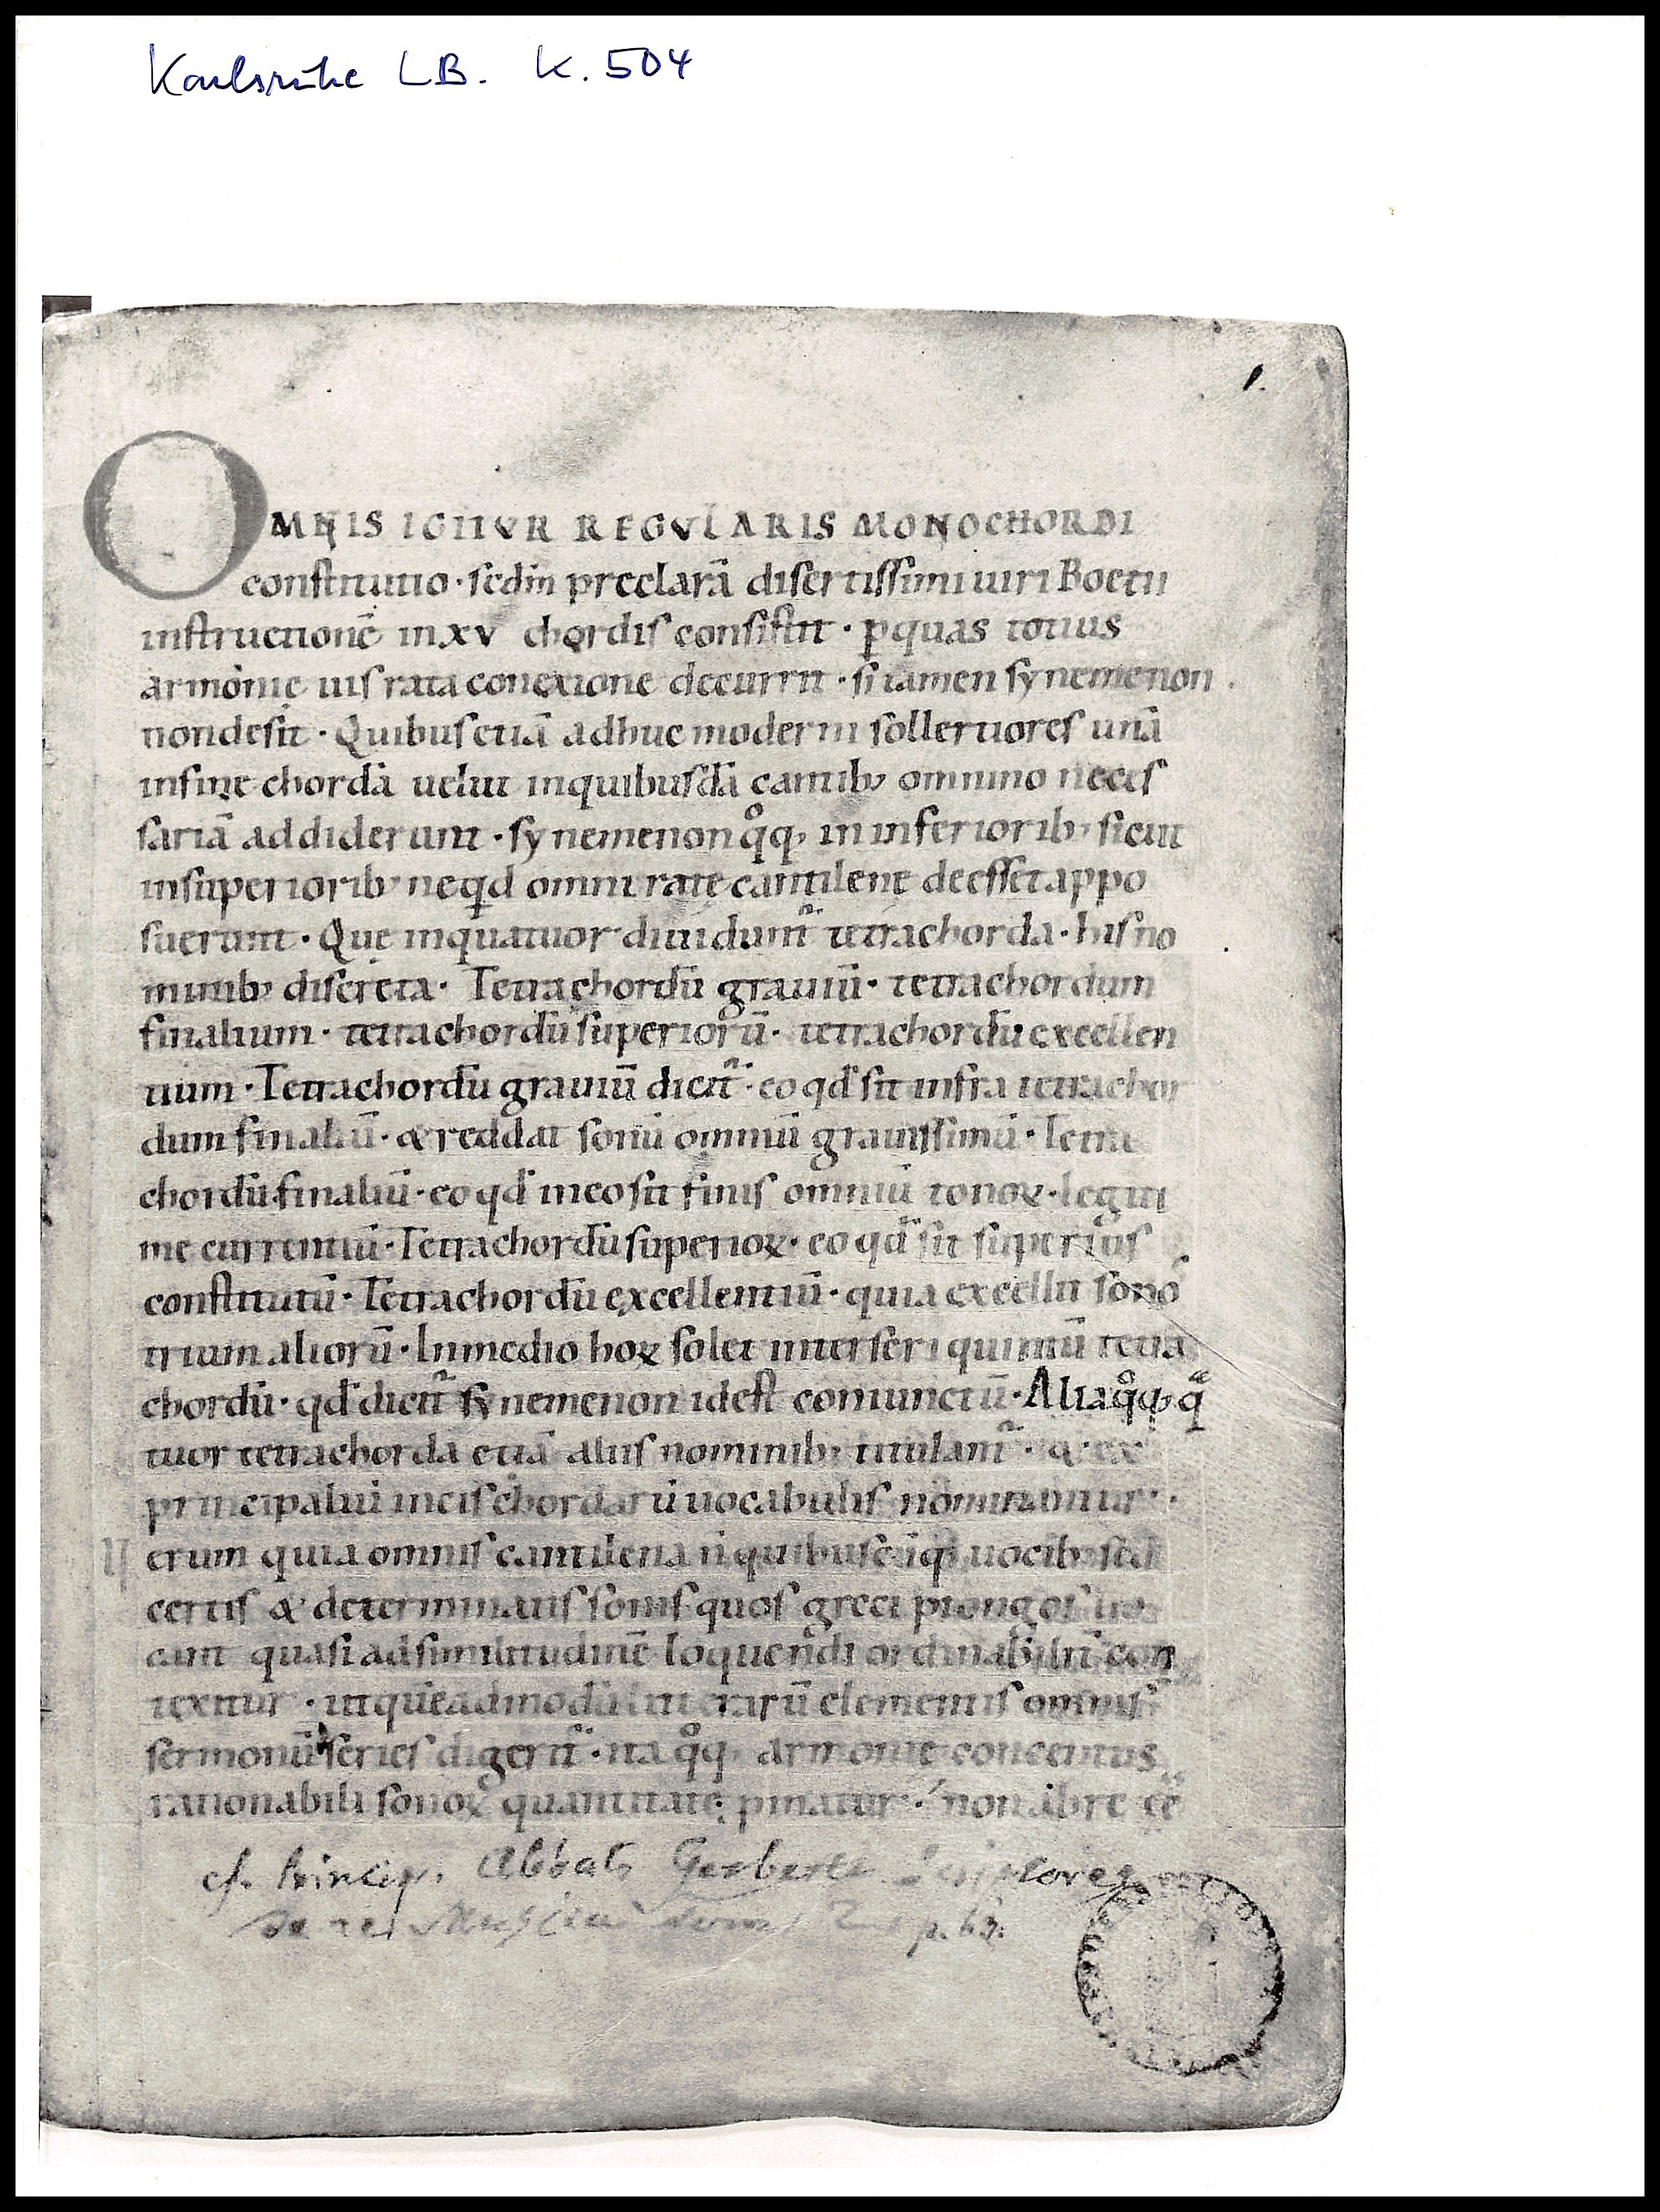 Karlsruhe LB. K. 504
1.
OMNIS IGITVR REGVLARIS MONOCHORDI
constitutio · sedm preclarā disertissimi uiri Boetii
instructionē in xv chordis consistit · ꝑ quas totius
armonię uis rata conexione decurrit · si tamen synemenon
non desit · Quibus etiā adhuc moderni sollertiores unā
in fine chordā uelut in quibusdā cantibꝫ omnino neces
sariā addiderunt · synemenon qͦqꝫ in inferioribꝫ sicut
in superioribꝫ ne qd omni rate cantilenę deesset appo
suerunt · Que in quatuor diuidunt̃ tetrachorda · his no
minibꝫ discreta · Tetrachordū grauiū · tetrachordum
finalium · tetrachordū superiorū · tetrachordū excellen
tium · Tetrachordū grauiū dicit̃ · eo qđ sit infra tetrachor
dum finaliū · & reddat sonū omniū grauissimū · Tetra
chordū finaliū · eo qđ in eo sit finis omniū tonoꝝ · legiti
me currentiū · Tetrachordū superioꝝ · eo qđ sit superius
constitutū · Tetrachordū excellentiū · quia excellit sono
trium aliorū · In medio hoꝝ solet interseri quintū tetra
chordū · qđ dicit̃ synemenon id est coniunctū · Alia qͦqꝫ qͣ
tuor tetrachorda etiā aliis nominibꝫ titulant̃ · q ex
principaliū in eis chordarū uocabulis nominantur ·
Uerum quia omnis cantilena ī quibuscūqꝫ uocibꝫ
certis & determinatis sonis quos greci ptongos uo
cant quasi ad similitudinē loquendi ordinabilit̃ con
texitur · ut quēadmodū litterarū elementis omnis
sermonū series digerit̃ · ita qͦqꝫ armonię concentus
rationabili sonoꝝ quantitate ꝑpinatur · non ab re ēē
cf. Princip. Abbatis Gerberti Scriptores
de re Musica Tom. 2 p. 63.